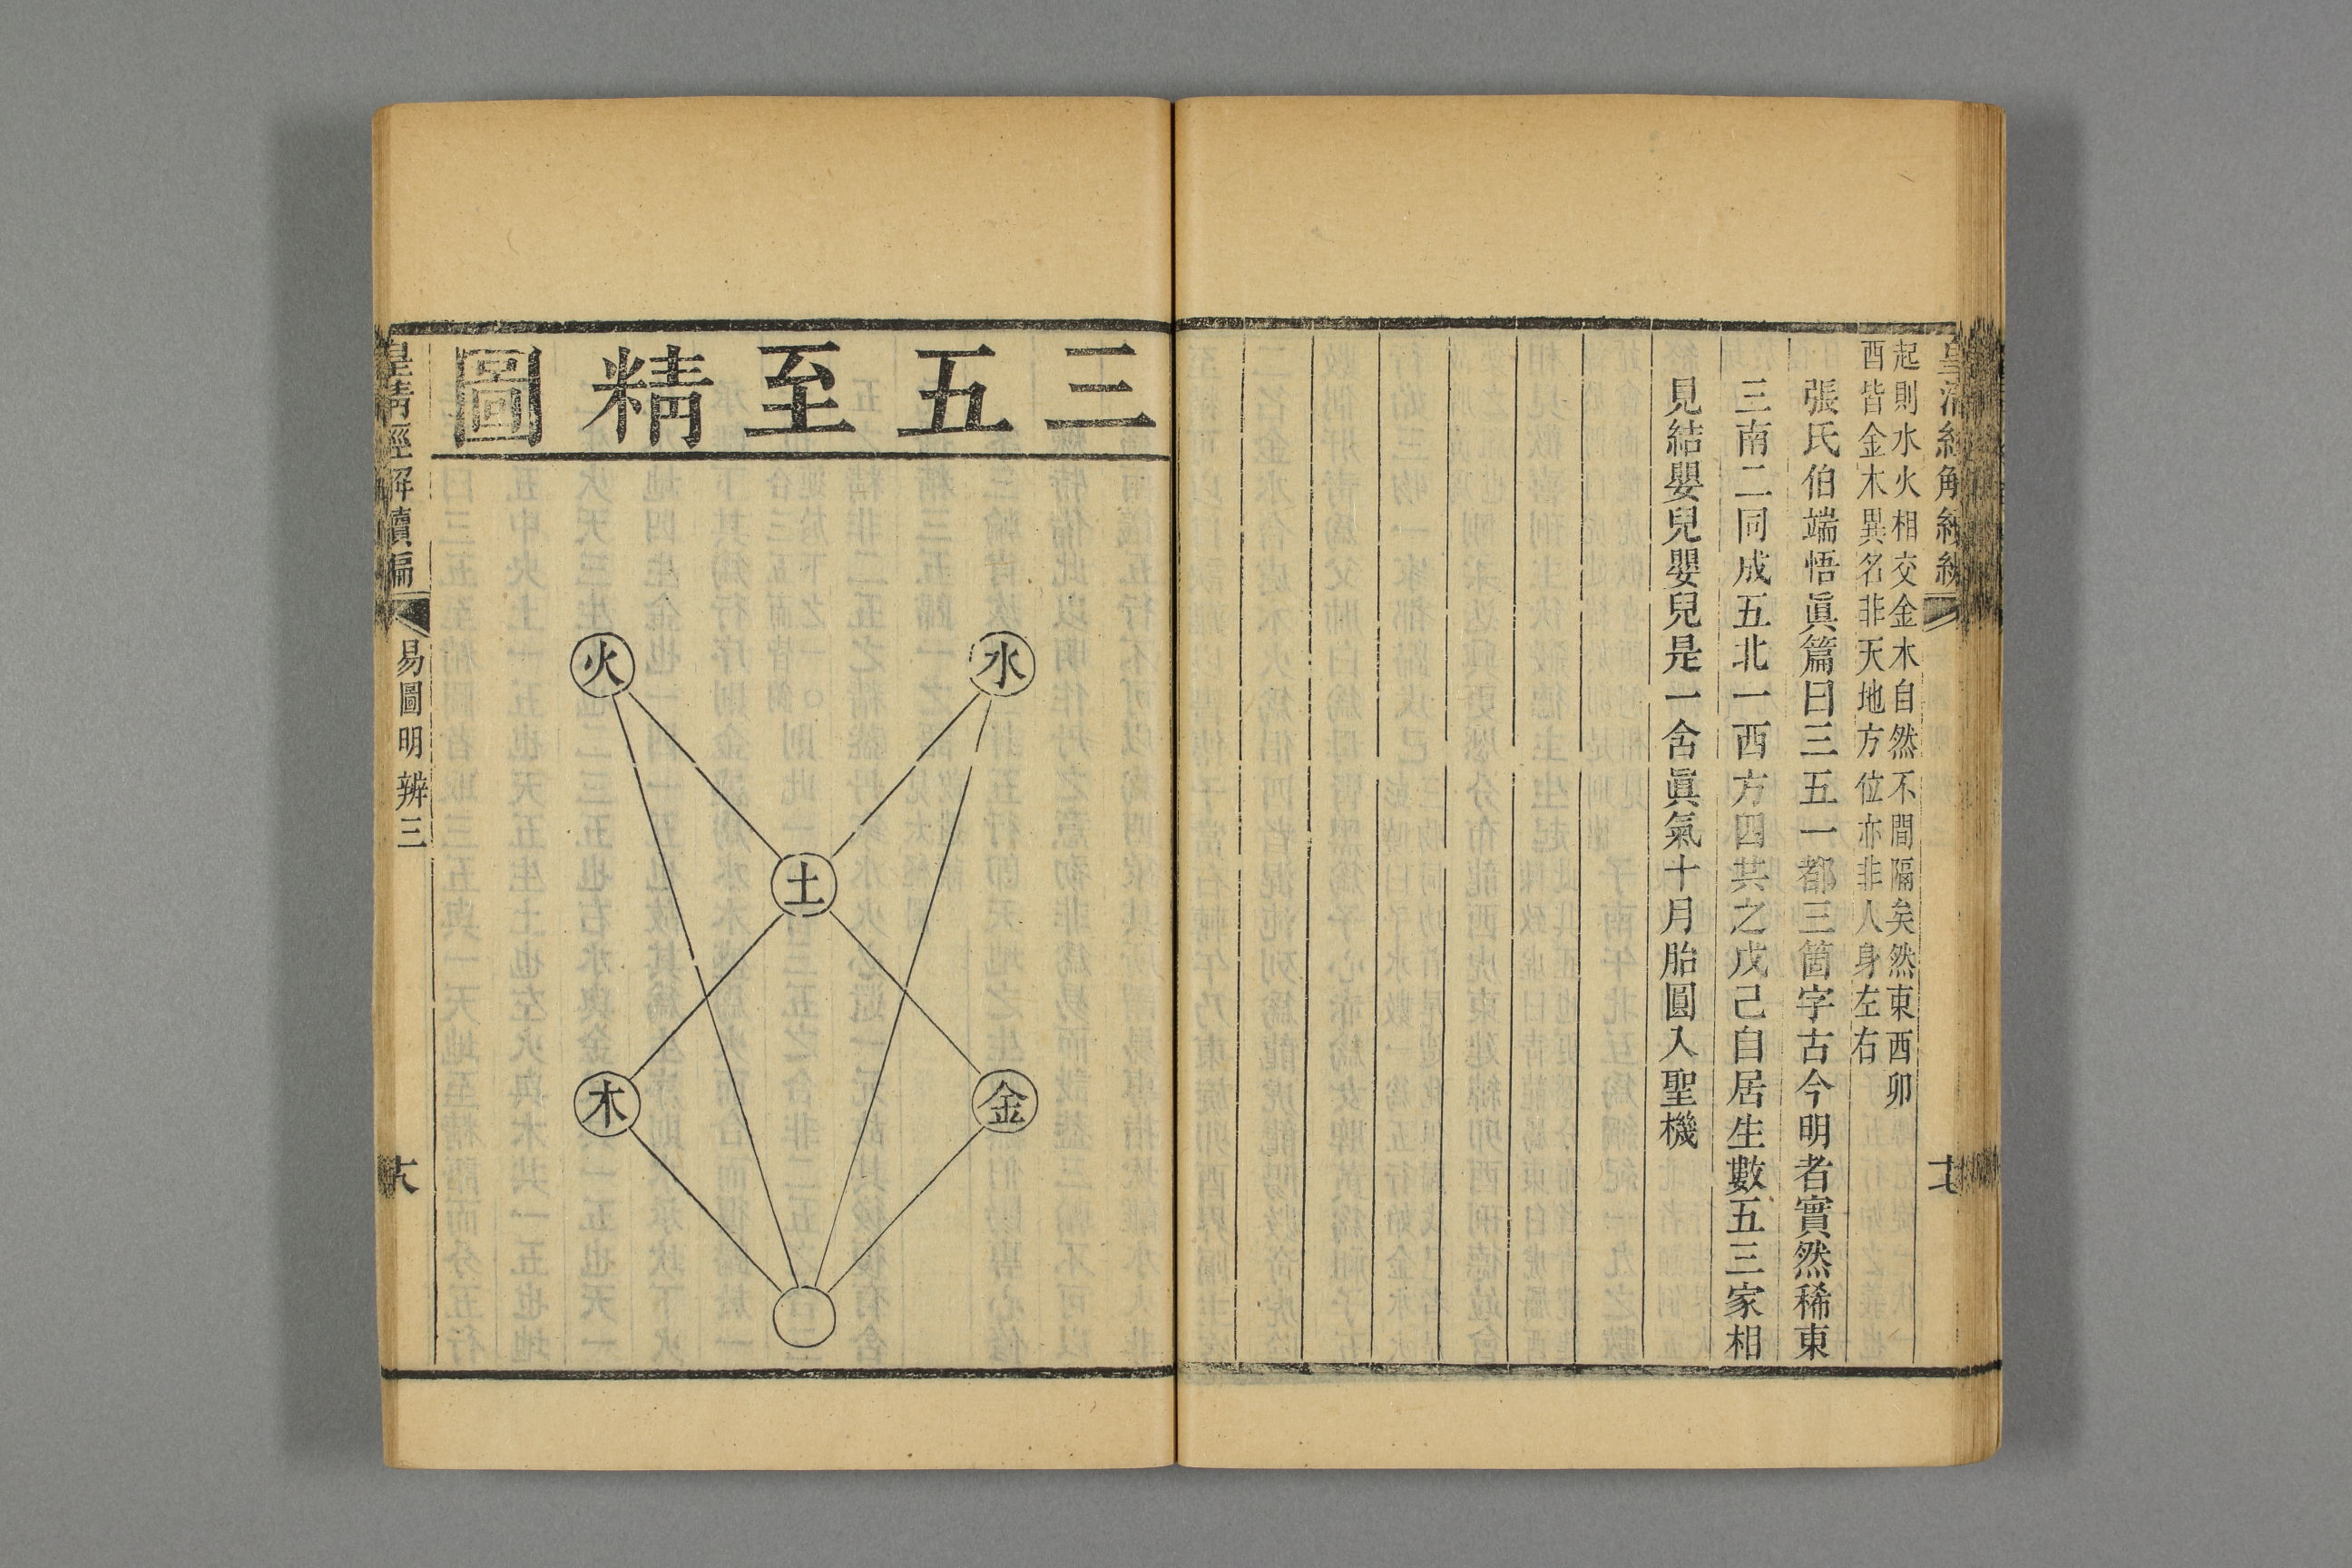 起則水火相交金木自然不間隔矣然東西卯
酉皆金木異名非天地方位亦非人身左右
張氏伯端悟眞篇曰三五一都三箇字古今明者實然稀東
三南二同成五北一西方四共之戊己自居生數五三家相
見結嬰兒嬰兒是一含眞氣十月胎圓入聖機
三五至精圖
水
火
土
金
木
皇淸經解續編
易圖明辨三